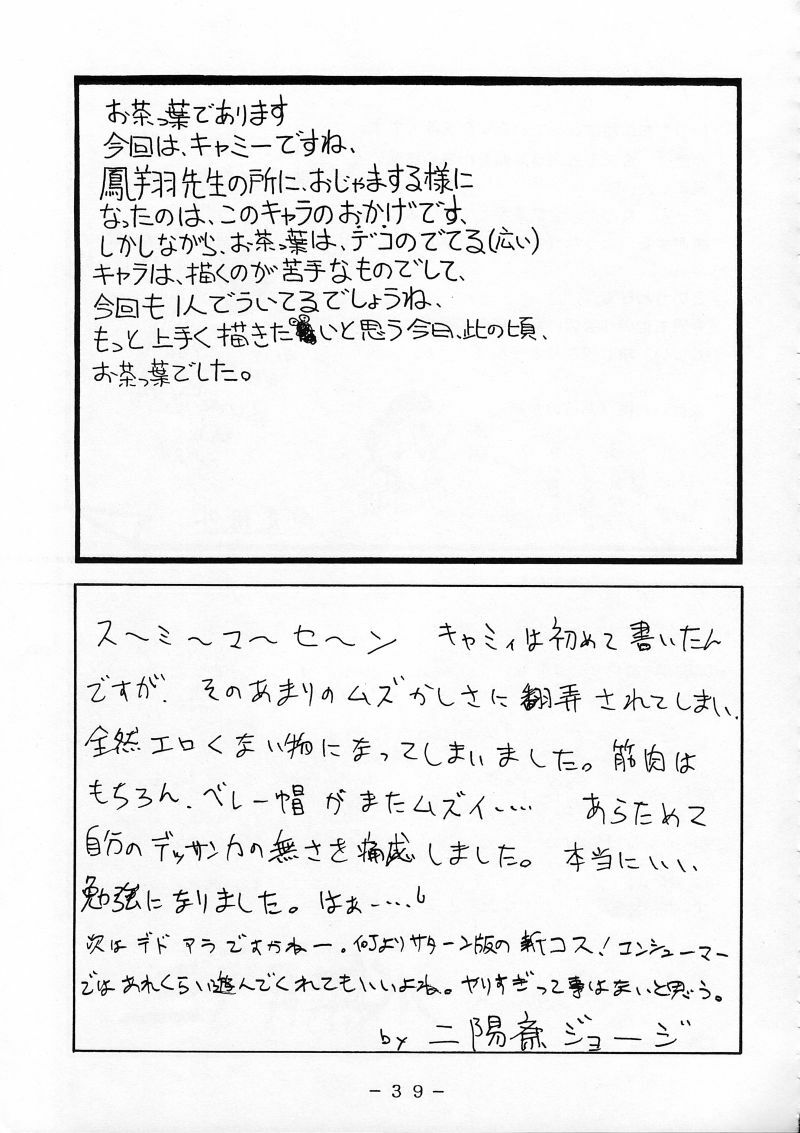 お茶っ葉であります
今回は、キャミーですね、
鳳翔羽先生の所に、おじゃまする様に
なったのは、このキャラのおかげです、
しかしながら、お茶っ葉は、デコのでてる(広い)
キャラは、描くのが苦手なものでして、
今回も1人でういてるでしょうね、
もっと上手く描きたいと思う今日、此の頃、
お茶っ葉でした。
ス〜ミ〜マ〜セ〜ン キャミィは初めて書いたん
ですが、そのあまりのムズかしさに翻弄されてしまい、
全然エロくない物になってしまいました。筋肉は
もちろん、ベレー帽がまたムズイ‥‥ あらためて
自分のデッサン力の無さを痛感しました。本当にいい
勉強になりました。はぁ‥‥。
次はデドアラですかねー。何よりサターン版の新コス！コンシューマー
ではあれくらい遊んでくれてもいいよね。ヤリすぎって事はないと思う。
by 二陽斎ジョージ
-39-